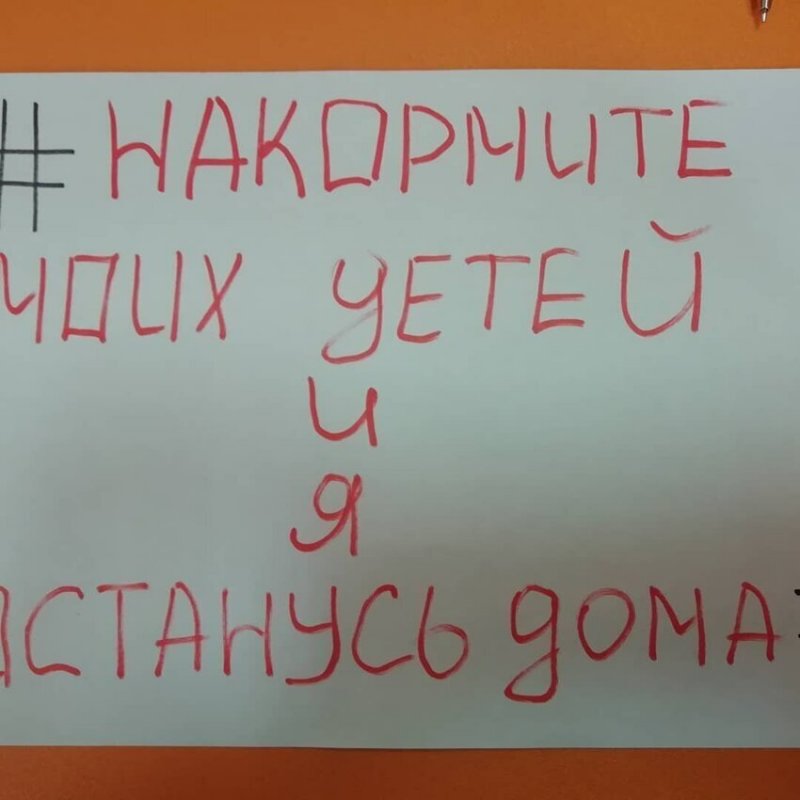 # НАКОРМИТЕ
МОИХ ДЕТЕЙ
И
Я
ОСТАНУСЬ ДОМА